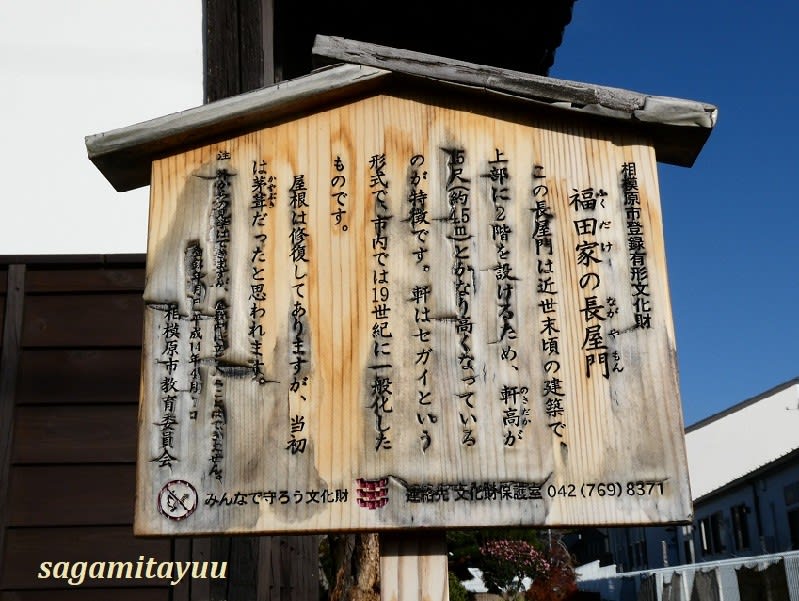 相模原市登録有形文化財
福田家の長屋門
ふくだけ
ながやもん
この長屋門は近世末頃の建築で、
上部に2階を設けるため、軒高が
のきだかが
15尺(約4.5m)とかなり高くなっている
のが特徴です。軒はセガイという
形式で、市内では19世紀に一般化した
ものです。
屋根は修復してありますが、当初
は茅葺だったと思われます。
かやぶき
注
見学はできますが、
ことはできません。
平成14年4月1日
相模原市教育委員会
みんなで守ろう文化財
連絡先 文化財保護室 042(769)8371
sagamitayuu